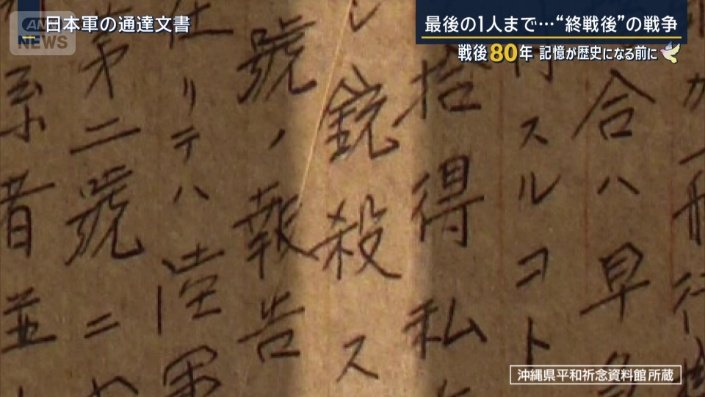 ANN
日本軍の通達文書
最後の1人まで…“終戦後”の戦争
戦後80年 記憶が歴史になる前に
合ハ早
スルコト
拾得私
シ銃殺ス
號ノ報告
仕リテハ陸軍
第二號ニ
系者並
沖縄県平和祈念資料館 所蔵